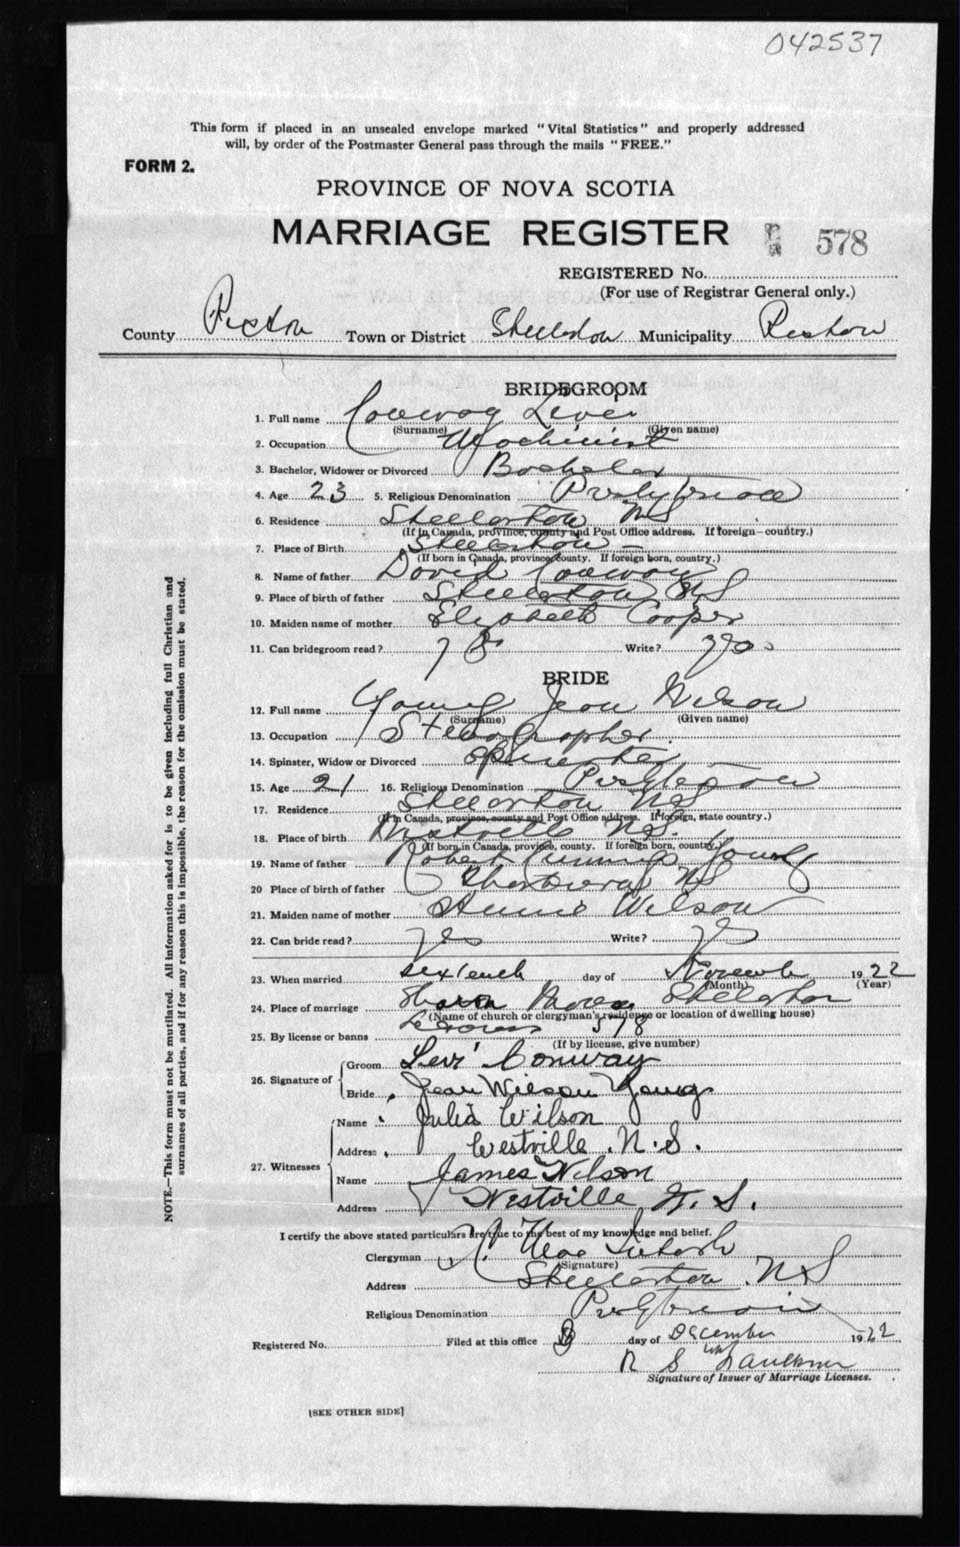 042537
This form if placed in an unsealed envelope marked "Vital Statistics" and properly addressed
will, by order of the Postmaster General pass through the mails "FREE."
FORM 2.
PROVINCE OF NOVA SCOTIA
MARRIAGE REGISTER 578
REGISTERED No.
(For use of Registrar General only.)
County Pictou Town or District Stellarton Municipality Pictou
BRIDEGROOM
1. Full name Conway Levi
(Surname) (Given name)
2. Occupation Machinist
3. Bachelor, Widower or Divorced Bachelor
4. Age 23 5. Religious Denomination
6. Residence Stellarton NS
(If in Canada, province, county and Post Office address. If foreign—country.)
7. Place of Birth Stellarton
(If born in Canada, province, county. If foreign born, country.)
8. Name of father David Conway
9. Place of birth of father Stellarton NS
10. Maiden name of mother Elizabeth Cooper
11. Can bridegroom read? Write?
BRIDE
12. Full name Young Jean Wilson
(Surname) (Given name)
13. Occupation Stenographer
14. Spinster, Widow or Divorced Spinster
15. Age 21 16. Religious Denomination
17. Residence Stellarton NS
(If in Canada, province, county and Post Office address. If foreign, state country.)
18. Place of birth Westville NS.
(If born in Canada, province, county. If foreign born, country)
19. Name of father Robert Cummings Young
20 Place of birth of father NS
21. Maiden name of mother Annie Wilson
22. Can bride read? yes Write? yes
23. When married day of 1922
(Month) (Year)
24. Place of marriage Stellarton
(Name of church or clergyman's residence or location of dwelling house)
25. By license or banns 578
(If by license, give number)
26. Signature of Groom Levi Conway
Bride Jean Wilson Young
27. Witnesses Name Julia Wilson
Address Westville N.S.
Name James Wilson
Address Westville N.S.
I certify the above stated particulars are true to the best of my knowledge and belief.
Clergyman
(Signature)
Address Stellarton NS
Religious Denomination
Registered No. Filed at this office day of December 1922
Faulkner
Signature of Issuer of Marriage Licenses.
[SEE OTHER SIDE]
NOTE.—This form must not be mutilated. All information asked for is to be given including full Christian and
surnames of all parties, and if for any reason this is impossible, the reason for the omission must be stated.